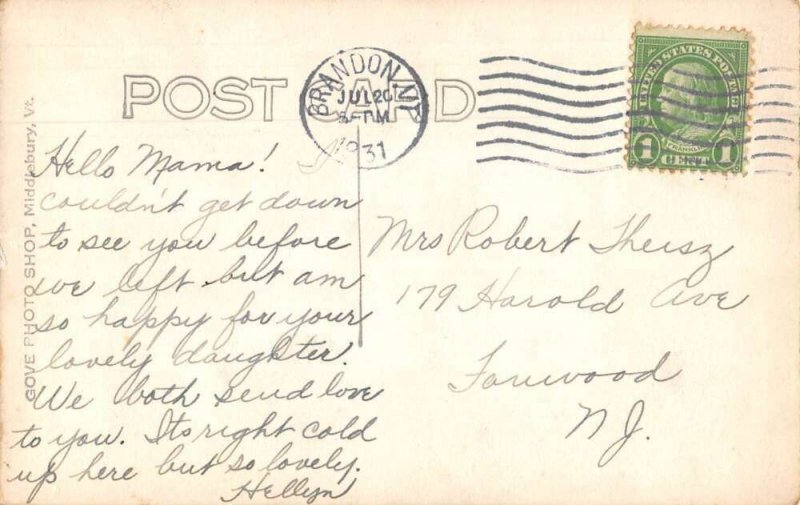 POST CARD
BRANDON, VT.
JUL 20
8-PM
1931
UNITED STATES POSTAGE
FRANKLIN
1 CENT 1
GOVE PHOTO SHOP, Middlebury, Vt.
Hello Mama! I
couldn't get down
to see you before
we left but am
so happy for your
lovely daughter.
We both send love
to you. Its right cold
up here but so lovely.
Hellyn
Mrs Robert Theisz
179 Harold Ave
Fanwood
N J.